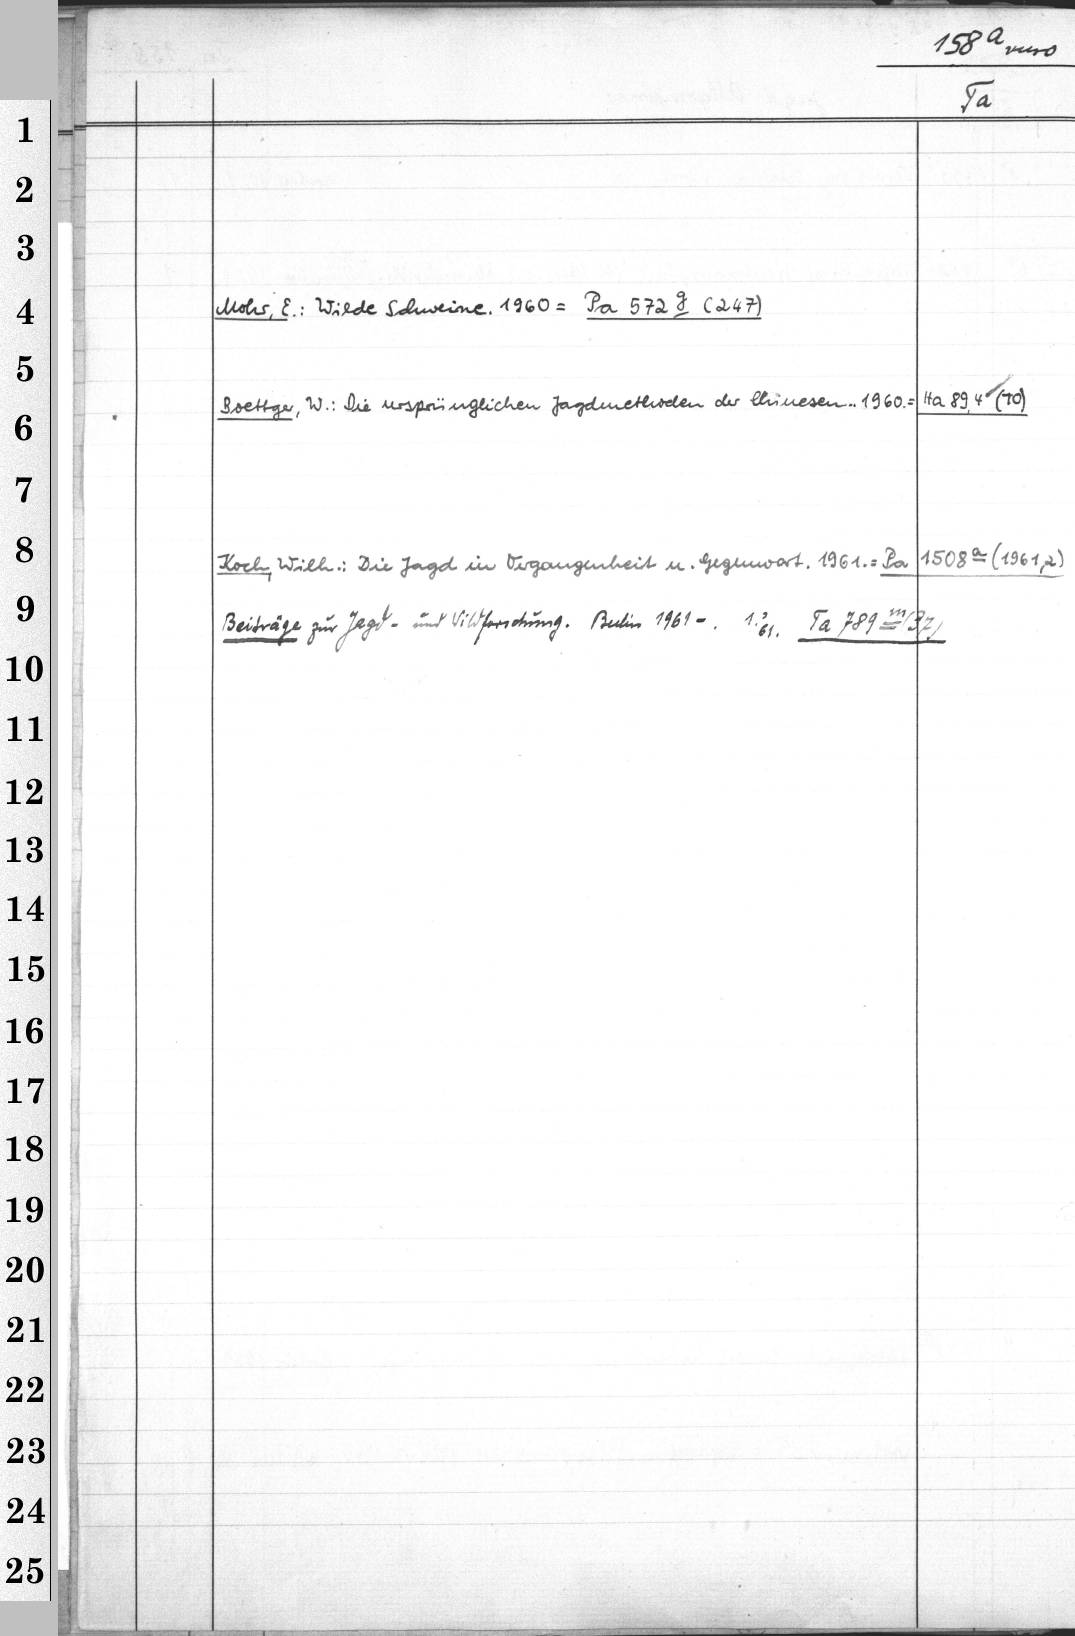 158 a verso
Ta
1
2
3
4
Mohr, E.: Wilde Schweine. 1960 = Pa 572 g (247)
5
Boettger, W.: Die ursprünglichen Jagdmethoden der Chinesen.. 1960.= Ha 89,4 (10)
6
7
8
Koch, Wilh.: Die Jagd in Vergangenheit u. Gegenwart. 1961.= Pa 1508 a (1961,2)
9
Beiträge zur Jagd- und Wildforschung. Berlin 1961 -. 1.? 61. Ta 789 m (37)
10
11
12
13
14
15
16
17
18
19
20
21
22
23
24
25